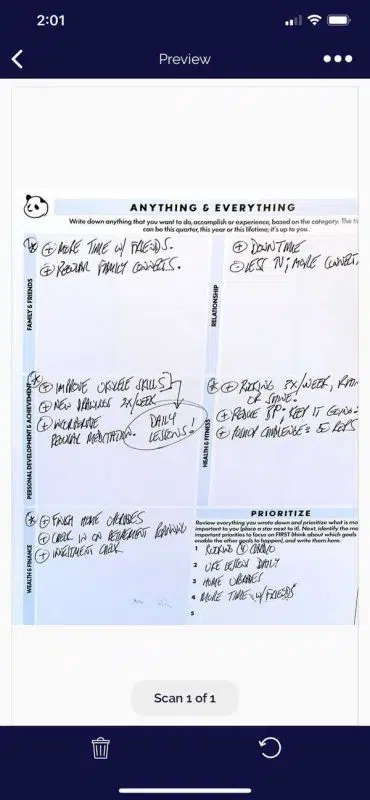 2:01
Preview
ANYTHING & EVERYTHING
Write down anything that you want to do, accomplish or experience, based on the category. The
can be this quarter, this year or this lifetime; it's up to you.
FAMILY & FRIENDS
+ MORE TIME W/ FRIENDS.
+ REGULAR FAMILY CONNECTS.
RELATIONSHIP
+ DOWNTIME
- LESS TV; MORE CONNECT.
PERSONAL DEVELOPMENT & ACHIEVEMENT
+ IMPROVE UKULELE SKILLS
+ NEW 2X/WEEK
+ INCORPORATE
REGULAR MEDITATION.
DAILY
LESSONS!
HEALTH & FITNESS
+ 3X/WEEK, RAIN
OR SHINE.
+ REDUCE BP; KEEP IT GOING
+ CHALLENGE: 5 REPS
WEALTH & FINANCE
+ FINISH HOME UPGRADES
+ CHECK IN ON RETIREMENT PLANNING
+ INVESTMENT CHECK
PRIORITIZE
Review everything you wrote down and prioritize what is mo
important to you (place a star next to it). Next, identify the mo
important priorities to focus on FIRST (think about which goals
enable the other goals to happen), and write them here.
1
2 UKE LESSON DAILY
3 HOME UPGRADES
4 MORE TIME W/FRIENDS
5
Scan 1 of 1